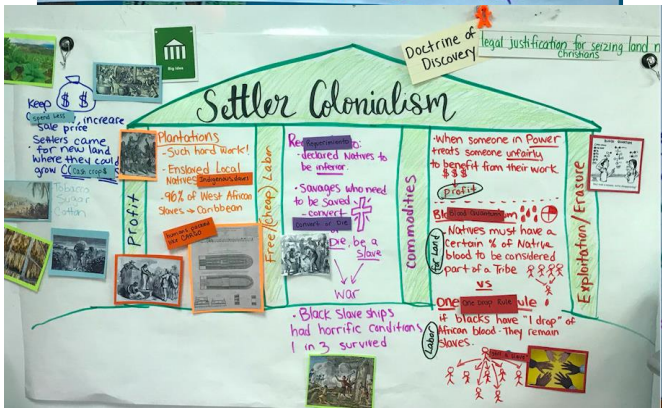 Doctrine of
Discovery
legal justification for seizing land
Christians
Big Idea
Settler Colonialism
Keep $ $
Spend Less, increase
sale price
Settlers came
for new land
where they could
grow Cash crops
Tobacco
Sugar
Cotton
Profit
Plantations
- Such hard work!
- Enslaved Local
Natives Indigenous slaves
- 96% of West African
Slaves → Caribbean
Humans packed
like CARGO
Free/(Cheap) Labor
Requerimiento
- declared Natives to
be inferior.
- Savages who need
to be saved
- convert
Convert or Die
Die, be a
slave
war
• Black Slave ships
had horrific conditions
1 in 3 survived
commodities
- When someone in Power
treats someone unfairly
to benefit from their work
$$$
Profit
Blood Quantum
for Land
- Natives must have a
Certain % of Native
blood to be considered
part of a Tribe
VS
One Drop Rule
if blacks have "1 drop" of
African blood - They remain
Slaves.
Labor
Exploitation/Erasure